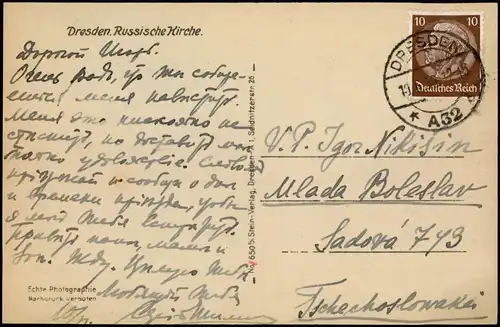 Dresden. Russische Kirche.
Дорогой Игорь.
Очень рад, что ты собира-
ешься меня навестить.
Меня это нисколько не
стеснит, но доставит мно
удовольствие.
приезжай и сообщи о дне
и времени приезда, чтобы
я мог тебя встретить.
Привет папе, маме и
Жду. Целую тебя
Любящий тебя
Echte Photographie
Nachdruck verboten
Stein-Verlag, Dresden-A. 1, Seidnitzerstr. 26
10 10
Deutsches Reich
DRESDEN
* A32
V. P. Igor Nikišin
Mlada Boleslav
Sadová 793
Tschechoslowakei